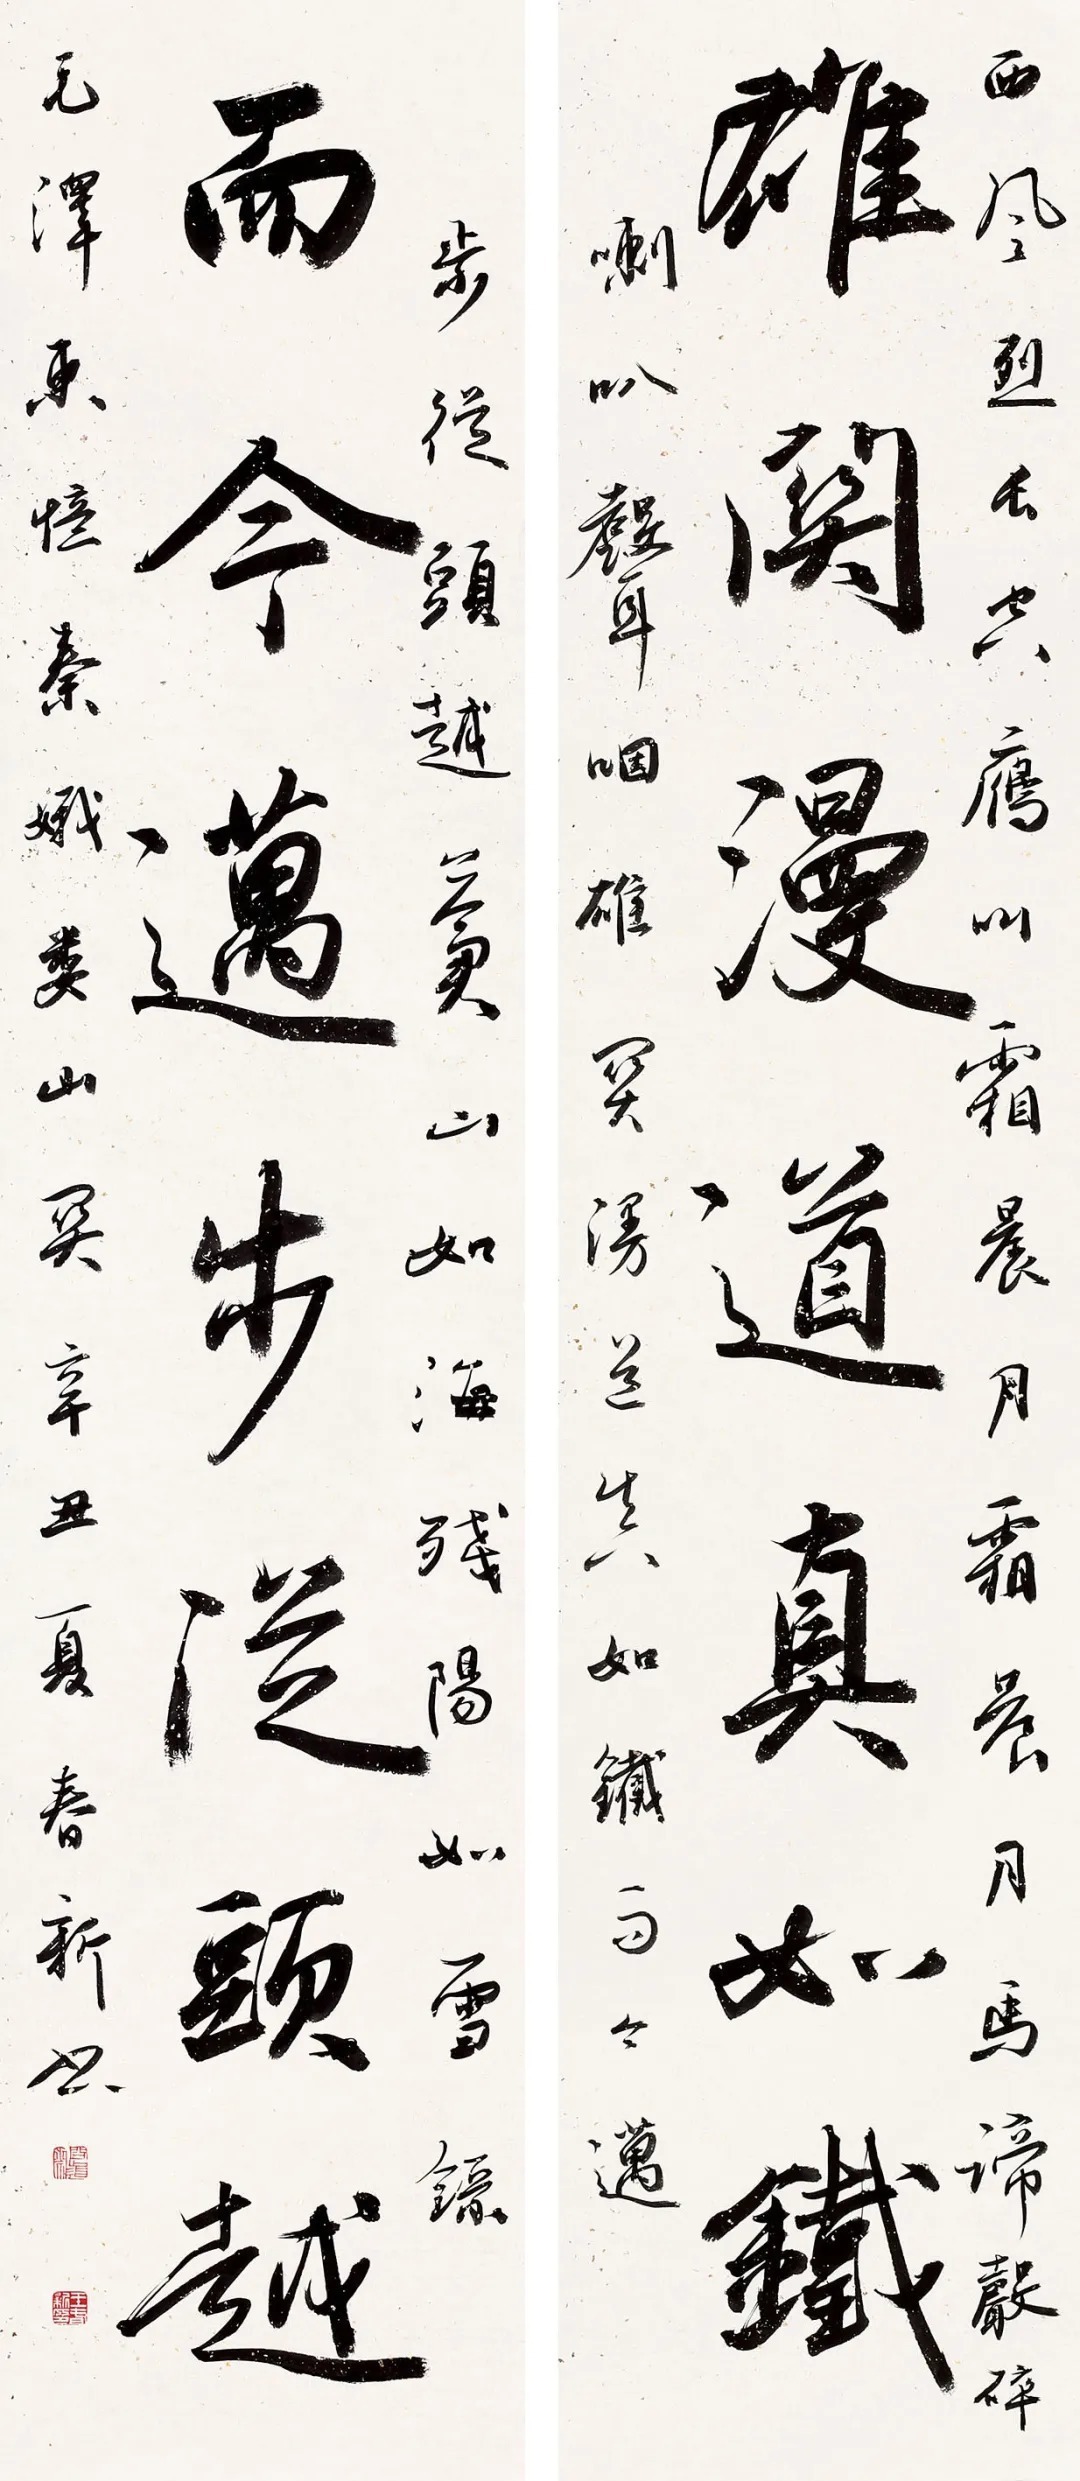 西風烈長空鴈叫霜晨月霜晨月馬蹄聲碎
雄關漫道真如鐵
喇叭聲咽雄關漫道真如鐵而今邁
步從頭越蒼山如海殘陽如雪錄
而今邁步從頭越
毛澤東憶秦娥婁山關辛丑夏春新書